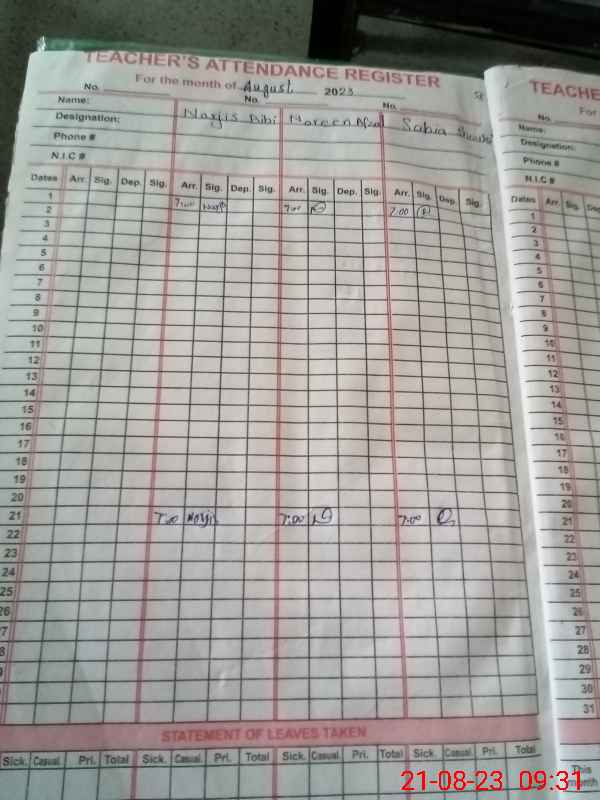 TEACHER'S ATTENDANCE REGISTER
For the month of August 2023
No. No. No.
Name: Narjis Bibi Noreen Afzal Sabia
Designation:
Phone #
N.I.C #
Dates Arr. Sig. Dep. Sig. Arr. Sig. Dep. Sig. Arr. Sig. Dep. Sig. Arr. Sig. Dep. Sig.
1
2 7:00 7:00 7:00
3
4
5
6
7
8
9
10
11
12
13
14
15
16
17
18
19
20
21 7:00 Narjis 7:00 7:00
22
23
24
25
26
7
8
STATEMENT OF LEAVES TAKEN
Sick. Casual. Pri. Total Sick. Casual. Pri. Total Sick. Casual. Pri. Total Sick. Casual. Pri. Total
TEACHE
For
No.
Name:
Designation:
Phone #
N.I.C #
Dates Arr. Sig. Dep.
1
2
3
4
5
6
7
8
9
10
11
12
13
14
15
16
17
18
19
20
21
22
23
24
25
26
27
28
29
30
31
This
month
21-08-23 09:31